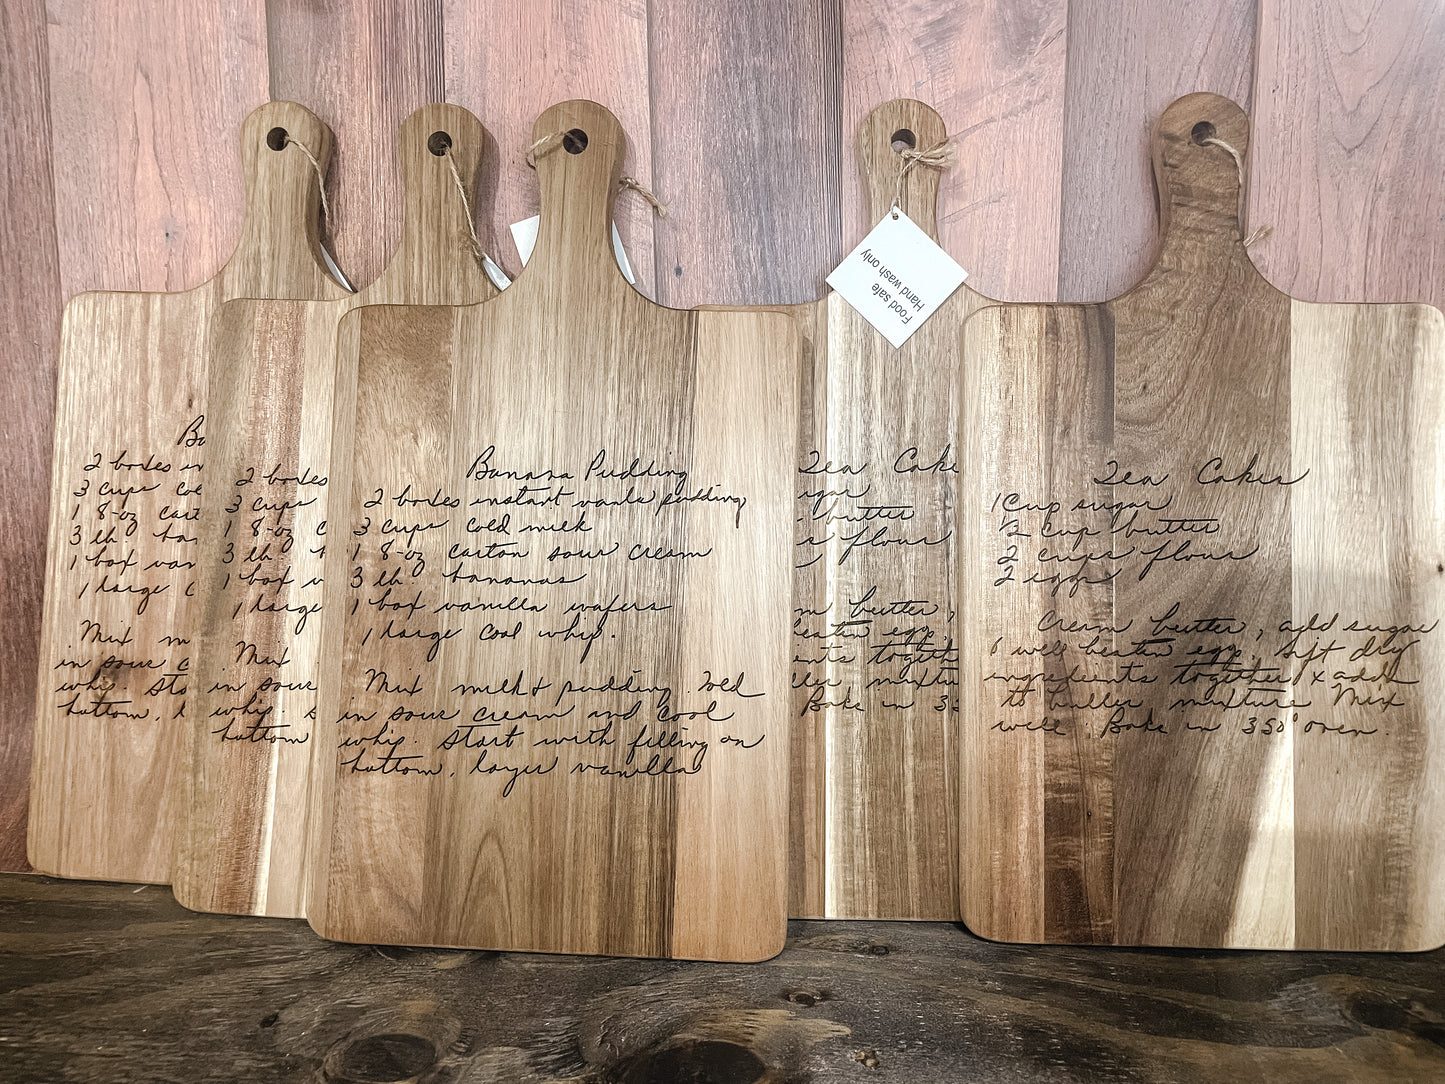 Ba
2 boxes in
3 cups col
1 8-oz cart
3 lb. ban
1 box van
1 large c
Mix m
in sour c
whip. Sta
bottom, l
2 boxes
3 cups
1 8-oz c
3 lb. b
1 box v
1 large
Mix
in sour
whip. s
bottom
Banana Pudding
2 boxes instant vanla pudding
3 cups cold milk
1 8-oz carton sour cream
3 lb. bananas
1 box vanilla wafers
1 large cool whip.
Mix milk & pudding. Fold
in sour cream and cool
whip. Start with filling on
bottom, layer vanilla
Food safe
Hand wash only
Tea Cake
ugar
butter
s flour
m butter,
eaten egg.
ents togeth
ller mixtu
Bake in 35
Tea Cakes
1 Cup sugar
½ cup butter
2 cups flour
2 eggs
Cream butter, add sugar
& well beaten egg. Sift dry
ingredients together & add
to butter mixture Mix
well. Bake in 350° oven.